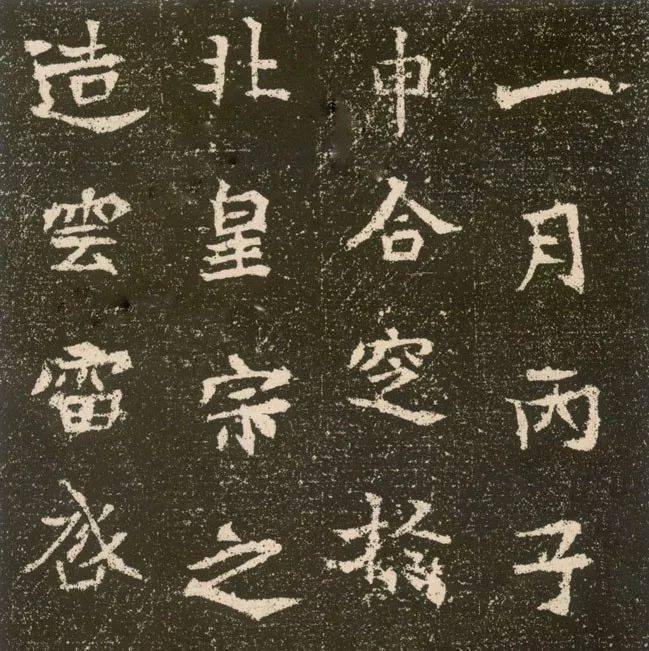 一月丙子
申合窆扵
北皇宗之
造雲雷